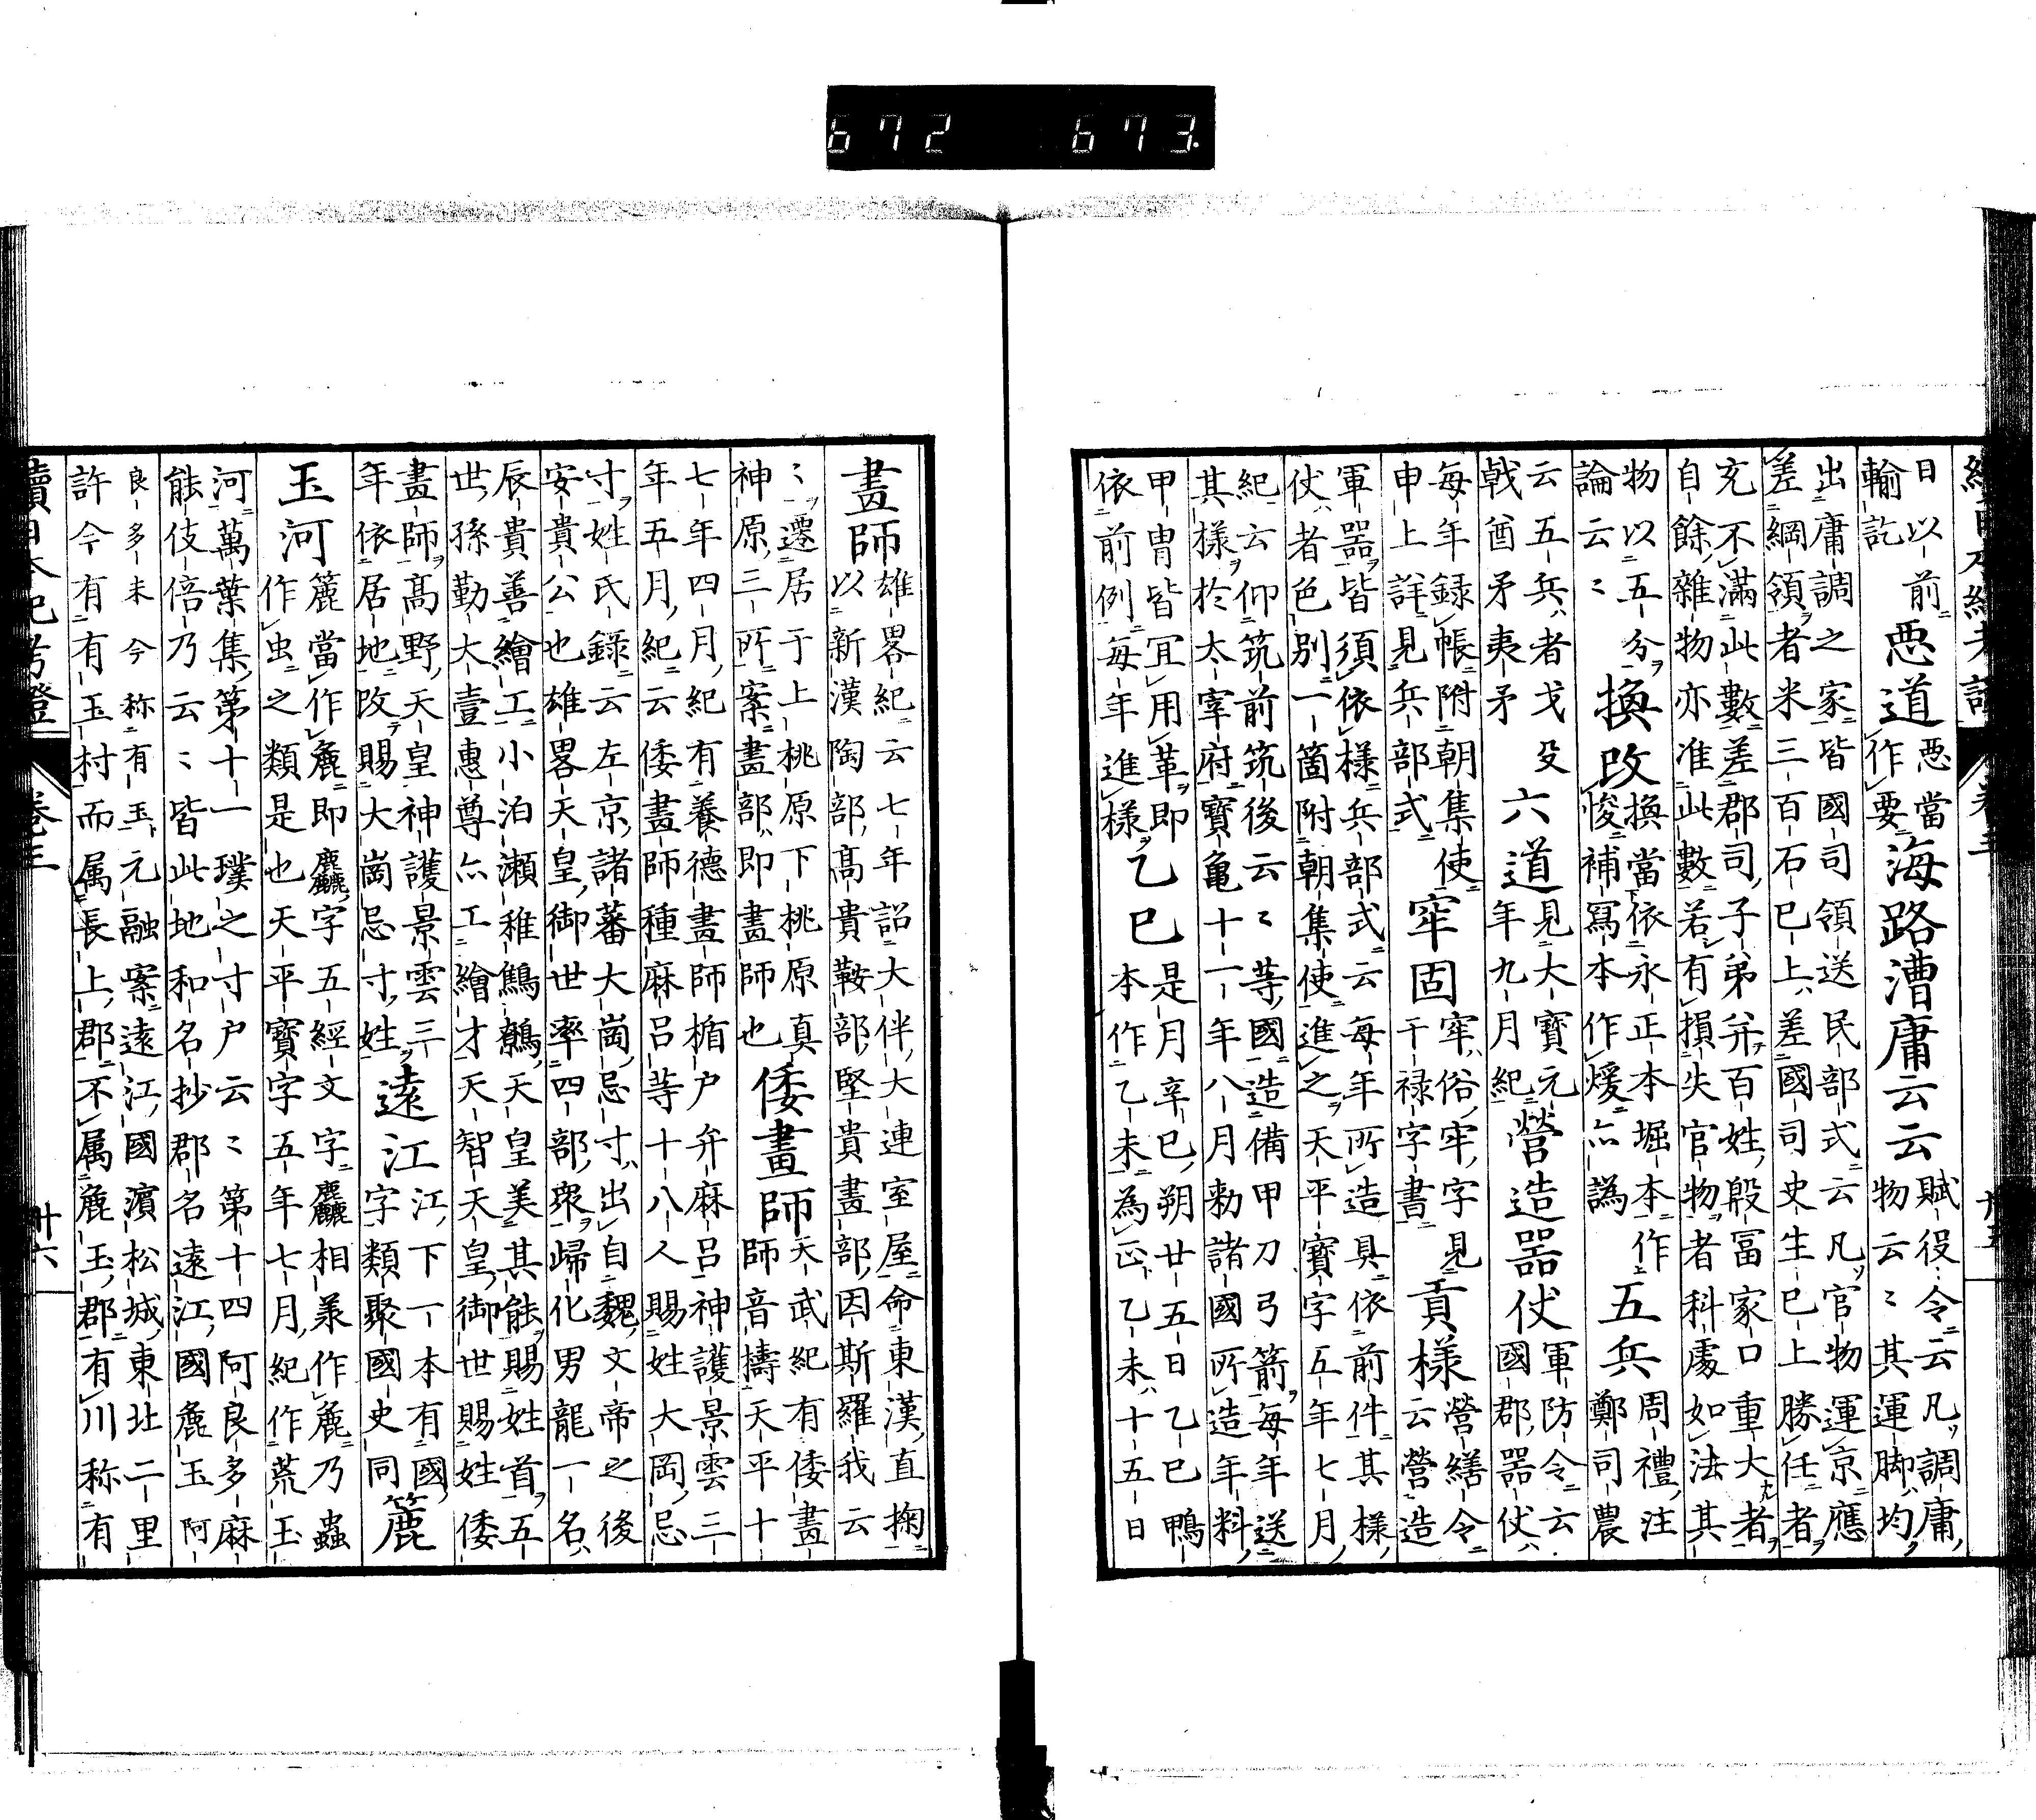 672 673
日以前
輸訖
悪道
悪當
作要
海路漕庸云云
賦役令云凡調庸
物云〻其運脚均
出庸調之家皆國司領送民部式云凡官物運京應
差綱領者米三百石已上差國司史生已上勝任者
充不滿此數差郡司子弟幷百姓殷冨家口重大者
自餘雜物亦准此數若有損失官物者科處如法其
物以五分
論云〻
換改
換當依永正本堀本作
悛補寫本作煖亦譌
五兵
周禮注
鄭司農
云五兵者戈殳
戟酋矛夷矛
六道
見大寶元
年九月紀
營造噐仗
軍防令云
國郡噐仗
每年録帳附朝集使
申上詳見兵部式
牢固
牢俗牢字見
干禄字書
貢様
營繕令
云營造
軍噐皆須依様兵部式云每年所造具依前件其様
仗者色別一箇附朝集使進之天平寶字五年七月
紀云仰筑前筑後云〻等國造備甲刀弓箭每年送
其様於太宰府寶龜十一年八月勅諸國所造年料
甲冑皆冝用革即
依前例每年進様
乙巳
是月辛巳朔廿五日乙巳鴨
本作乙未為正乙未十五日
畫師
雄畧紀云七年詔大伴大連室屋命東漢直掬
以新漢陶部髙貴鞍部堅貴畫部因斯羅我云
〻遷居于上桃原下桃原真
神原三所案畫部即畫師也
倭畫師
天武紀有倭畫
師音檮天平十
七年四月紀有養德畫師楯戸弁麻呂神護景雲三
年五月紀云倭畫師種麻呂等十八人賜姓大岡忌
寸姓氏錄云左京諸蕃大崗忌寸出自魏文帝之後
安貴公也雄畧天皇御世率四部衆歸化男龍一名
辰貴善繪工小泊瀬稚鷦鷯天皇美其能賜姓首五
世孫勤大壹惠尊亦工繪才天智天皇御世賜姓倭
畫師髙野天皇神護景雲三
年依居地改賜大崗忌寸姓
遠江
江下一本有國
字類聚國史同
簏
玉河
簏當作麁即麤字五經文字麤相羕作麁乃蟲
作虫之類是也天平寶字五年七月紀作荒玉
河萬葉集第十一璞之寸戸云〻第十四阿良多麻
能伎倍乃云〻皆此地和名抄郡名遠江國麁玉阿
良多未今称有玉元融案遠江國濱松城東北二里
許今有有玉村而属長上郡不属麁玉郡有川称有
續日本紀考證
卷三
卄六